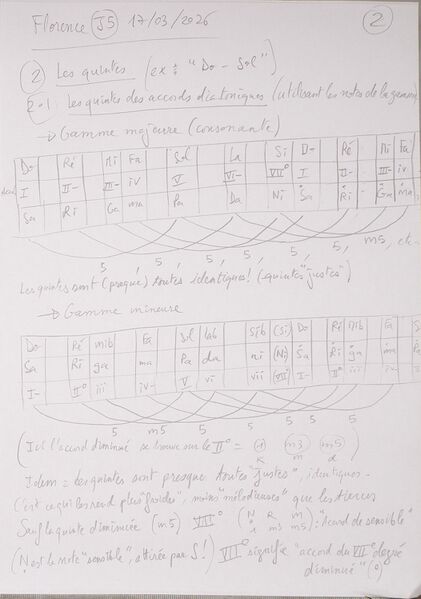 Florence J5 17/03/2026 2
2 Les quintes (ex : "Do - Sol")
2-1 Les quintes des accords diatoniques (utilisant les notes de la gamme
→ Gamme majeure (consonante)
Do Ré Mi Fa Sol La Si Do Ré Mi Fa
I II- III- IV V VI- VII° I II- III- iv
Sa Ri Ga ma Pa Da Ni Sa Ri Ga ma
5, 5, 5, 5, 5, 5, m5, etc
Les quintes sont (presque) toutes identiques! (quintes "justes")
→ Gamme mineure
Do Ré mib Fa Sol lab Sib (Si) Do Ré mib Fa
Sa Ri ga ma Pa da ni (Ni) Sa Ri ga ma
I- II° iii iv- V vi vii (VII) I- II° iii iv-
5 m5 5 5 5 5 5
(Ici l'accord diminué se trouve sur le II° = R m3 m m5 d
Idem = Les quintes sont presque toutes "justes", identiques -
C'est ce qui les rend plus "froides", moins "mélodieuses" que les tierces
Sauf la quinte diminuée (m5) VII° (N R m 1 m3 m5) : "Accord de sensible"
(N est la note "sensible", attirée par S!) VII° signifie "accord du VII° degré
diminué" (o)